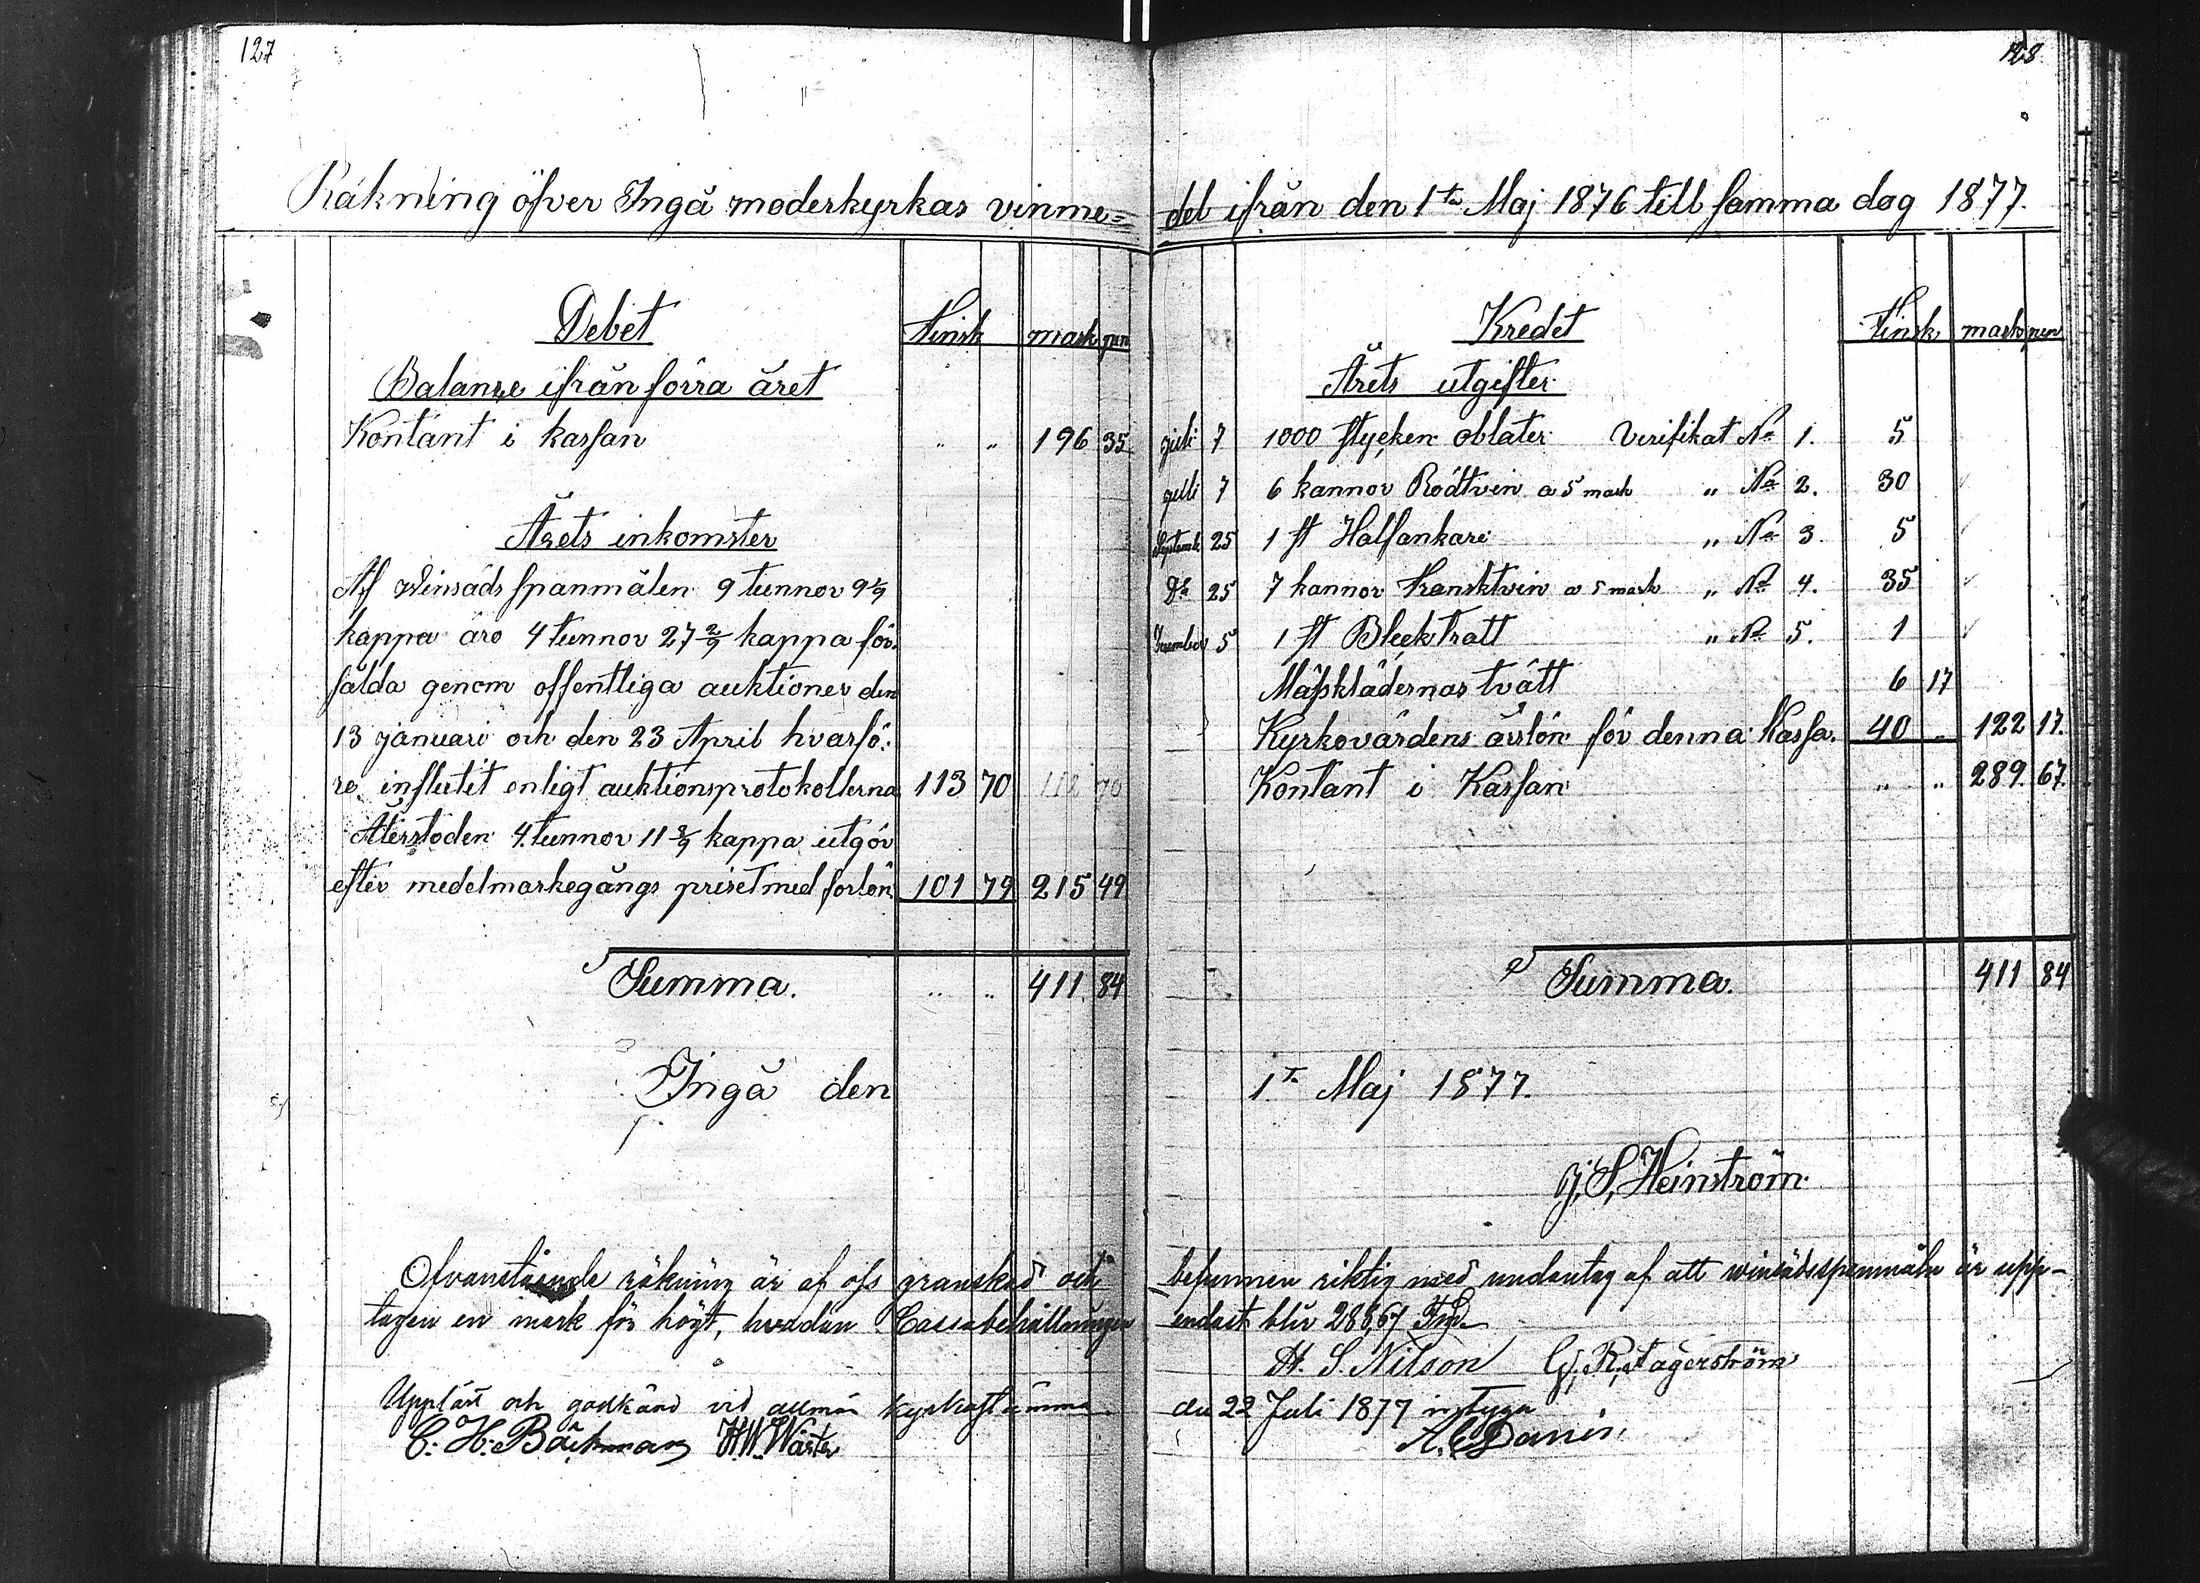 127
Räkning öfver Ingå moderkyrkas vinme=
Debet
Finsk mark pen
Balanse ifrån förra året
Kontant i kassan " " 196 35
Årets inkomster
Af Winsäds spanmålen 9 tunnor 9 1/9
kappa äro 4 tunnor 27 2/9 kappa för-
sålda genom offentliga auktioner den
13 januari och den 23 April hvarfö:
re influtit enligt auktionsprotokollerna 113 70 112 70
Återstoden 4 tunnor 11 8/9 kappa utgör
efter medelmarkegångs priset med forlön 101 79 215 49
Summa. " " 411. 84
Ingå den
Ofvanstående räkning är af oss granskad och
tagen en mark för högt, hvadan Cassabehållningen
Uppläst och godkänd vid allmän kyrkostämma
C: H: Bäckman H.W. Wäster
128
del ifrån den 1ta Maj 1876 till samma dag 1877.
Kredet
Finsk mark pen
Årets utgifter
juli 7 1000 stycken oblater Verifikat No 1. 5
juli 7 6 kannor Rödtvin a 5 mark " No 2. 30
Septemb. 25 1 st Halfankare " No 3. 5
Do 25 7 kannor Fransktvin a 5 mark " No 4. 35
December 5 1 st Blecktratt " No 5. 1
Mässklädernas tvätt 6 17
Kyrkovärdens årslön för denna Kassa. 40 " 122 17.
Kontant i Kassan " " 289. 67.
Summa. 411 84
1ta Maj 1877.
J, S, Heinström
befunnen riktig med undantag af att winsädsspanmåln är upp-
endast blir 288,67 Fmk
H. S. Nilson G, R, Fagerström
den 22 Juli 1877 intyga